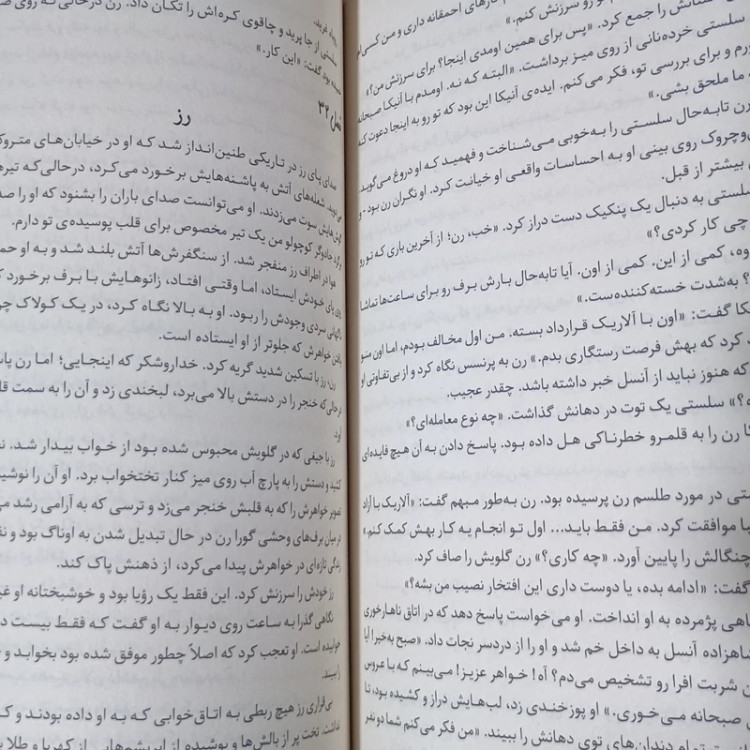 کارهای احمقانه داری و من کسی‌ام
رو سرزنش کنم.»
را جمع کرد. «پس برای همین اومدی اینجا؟ برای سرزنش من؟»
سلستی خرده‌نانی از روی میز برداشت. «البته که نه. اومدم با آنیکا صبحانه
بخورم و برای بررسی تو، فکر می‌کنم. ایده‌ی آنیکا این بود که تو رو به اینجا دعوت کنه
ما ملحق بشی.»
رن تابه‌حال سلستی را به‌خوبی می‌شناخت و فهمید که او دروغ می‌گوید.
چروک روی بینی او به احساسات واقعی او خیانت کرد. او نگران رن بود - و
بیشتر از قبل.
سلستی به دنبال یک پنکیک دست دراز کرد. «خب، رن؛ از آخرین باری که تو رو
چی کار کردی؟»
«اوه، کمی از این. کمی از اون. آیا تابه‌حال بارش برف رو برای ساعت‌ها تماشا
؟ به‌شدت خسته‌کننده‌ست.»
گفت: «اون با آلاریک قرارداد بسته. من اول مخالف بودم، اما اون منو
کرد که بهش فرصت رستگاری بدم.» رن به پرنسس نگاه کرد و از بی‌تفاوتی او
که هنوز نباید از آنسل خبر داشته باشد. چقدر عجیب.
سلستی یک توت در دهانش گذاشت. «چه نوع معامله‌ای؟»
رن را به قلمرو خطرناکی هل داده بود. پاسخ دادن به آن هیچ فایده‌ای
در مورد طلسم رن پرسیده بود. رن به‌طور مبهم گفت: «آلاریک با آزاد
موافقت کرد. من فقط باید... اول تو انجام یه کار بهش کمک کنم»
چنگالش را پایین آورد. «چه کاری؟» رن گلویش را صاف کرد.
گفت: «ادامه بده، یا دوست داری این افتخار نصیب من بشه؟»
پژمرده به او انداخت. او می‌خواست پاسخ دهد که در اتاق ناهارخوری
شاهزاده آنسل به داخل خم شد و او را از دردسر نجات داد. «صبح به‌خیر! آیا
شربت افرا رو تشخیص می‌دم؟ آه! خواهر عزیز! می‌بینم که با عروس
صبحانه می‌خوری.» او پوزخندی زد، لب‌هایش دراز و کشیده بود، تا
دندان‌های توی دهانش را ببیند. «من فکر می‌کنم شما دو نفر
سلستی از جا پرید و چاقوی کره‌اش را تکان داد. رن درحالی‌که روی
گفت: «این کار.»
فصل ۳۲
رز
صدای پای رز در تاریکی طنین‌انداز شد که او در خیابان‌های متروک
می‌دوید. شعله‌های آتش به پاشنه‌هایش برخورد می‌کرد، درحالی‌که تیرها
سوت می‌زدند. او می‌توانست صدای باران را بشنود که او را صدا
جادوگر کوچولو من یک تیر مخصوص برای قلب پوسیده‌ی تو دارم.
هوا در اطراف رز منفجر شد. از سنگفرش‌ها آتش بلند شد و به او حمله
پای خودش ایستاد، اما وقتی افتاد، زانوهایش با برف برخورد کرد
سردی وجودش را ربود. او به بالا نگاه کرد، در یک کولاک چرخان
خواهرش که جلوتر از او ایستاده است.
رز با تسکین شدید گریه کرد. خداروشکر که اینجایی؛ اما رن پاسخ
درحالی‌که خنجر را در دستش بالا می‌برد، لبخندی زد و آن را به سمت قلب
آورد.
رز با جیغی که در گلویش محبوس شده بود از خواب بیدار شد.
کشید و دستش را به پارچ آب روی میز کنار تختخواب برد. او آن را نوشید
تصویر خواهرش را که به قلبش خنجر می‌زد و ترسی که به آرامی رشد می‌کرد
در میان برف‌های وحشی گورا رن در حال تبدیل شدن به اوناگ بود و نقطه
زندگی تازه‌ای در خواهرش پیدا می‌کرد، از ذهنش پاک کند.
رز خودش را سرزنش کرد. این فقط یک رؤیا بود و خوشبختانه او غیر
نگاهی گذرا به ساعت روی دیوار به او گفت که فقط بیست دقیقه
خوابیده است. او تعجب کرد که اصلاً چطور موفق شده بود بخوابد و
را ببیند.
بی‌قراری رز هیچ ربطی به اتاق‌خوابی که به او داده بودند و که
نداشت. تخت پر از بالش‌ها و پوشیده از ابریشم‌هایی از کهربا و طلا بود